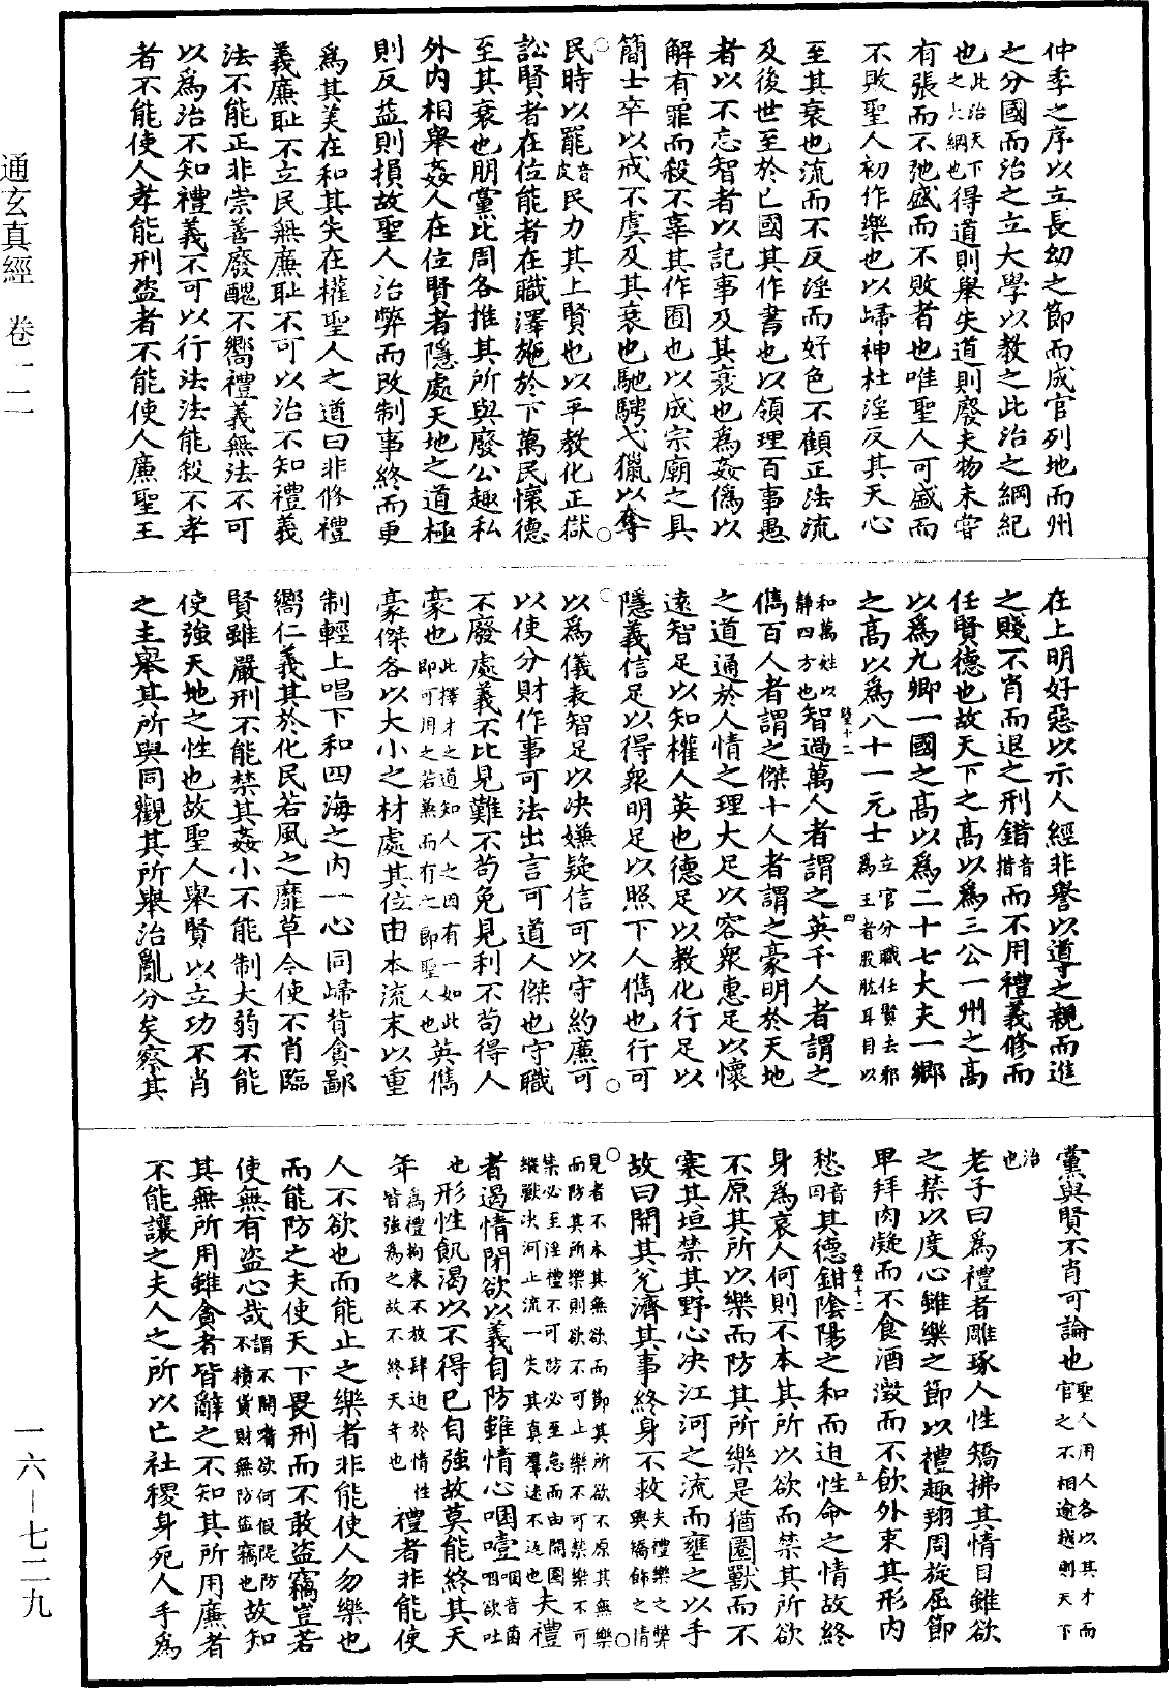 仲季之序以立長幼之節而成官列地而州
之分國而治之立大學以教之此治之綱紀
也此治天下之大綱也得道則舉失道則廢夫物未嘗
有張而不弛盛而不敗者也唯聖人可盛而
不敗聖人初作樂也以歸神杜淫反其天心
至其衰也流而不反淫而好色不顧正法流
及後世至於亡國其作書也以領理百事愚
者以不忘智者以記事及其衰也為姦偽以
解有罪而殺不辜其作囿也以成宗廟之具
簡士卒以戒不虞及其衰也馳騁弋獵以奪
民時以罷音皮民力其上賢也以平教化正獄
訟賢者在位能者在職澤施於下萬民懷德
至其衰也朋黨比周各推其所與廢公趣私
外內相舉姦人在位賢者隱處天地之道極
則反益則損故聖人治弊而改制事終而更
為其美在和其失在權聖人之道曰非修禮
義廉恥不立民無廉恥不可以治不知禮義
法不能正非崇善廢醜不嚮禮義無法不可
以為治不知禮義不可以行法法能殺不孝
者不能使人孝能刑盜者不能使人廉聖王
在上明好惡以示人經非譽以導之親而進
之賤不肖而退之刑錯音措而不用禮義修而
任賢德也故天下之高以為三公一州之高
以為九卿一國之高以為二十七大夫一鄉
之高以為八十一元士立官分職任賢去邪為王者股肱耳目以
和萬姓以靜四方也智過萬人者謂之英千人者謂之
儁百人者謂之傑十人者謂之豪明於天地
之道通於人情之理大足以容眾惠足以懷
遠智足以知權人英也德足以教化行足以
隱義信足以得眾明足以照下人儁也行可
以為儀表智足以決嫌疑信可以守約廉可
以使分財作事可法出言可道人傑也守職
不廢處義不比見難不苟免見利不苟得人
豪也此擇才之道知人之因有一如此即可用之若兼而有之即聖人也英儁
豪傑各以大小之材處其位由本流末以重
制輕上唱下和四海之內一心同歸背貪鄙
嚮仁義其於化民若風之靡草今使不肖臨
賢雖嚴刑不能禁其姦小不能制大弱不能
使強天地之性也故聖人舉賢以立功不肖
之主舉其所與同觀其所舉治亂分矣察其
黨與賢不肖可論也聖人用人各以其才而官之不相逾越則天下
治也
老子曰為禮者雕琢人性矯拂其情目雖欲
之禁以度心雖樂之節以禮趣翔周旋屈節
卑拜肉凝而不食酒澂而不飲外束其形內
愁音囚其德鉗陰陽之和而迫性命之情故終
身為哀人何則不本其所以欲而禁其所欲
不原其所以樂而防其所樂是猶圈獸而不
塞其垣禁其野心決江河之流而壅之以手
故曰開其兌濟其事終身不救夫禮樂之弊興矯飾之情
見者不本其無欲而節其所欲不原其無樂而防其所樂則欲不可止樂不可禁樂不可
集必至淫禮不可防必至怠而由開圈縱獸決河止流一失其真羣迷不返也夫禮
者遏情閉欲以義自防雖情心咽噎咽音菌咽欲吐
也形性飢渴以不得已自強故莫能終其天
年為禮拘束不放肆迫於情性皆強為之故不終天年也禮者非能使
人不欲也而能止之樂者非能使人勿樂也
而能防之夫使天下畏刑而不敢盜竊豈若
使無有盜心哉謂不開嗜欲何假隄防不積貨財無防盜竊也故知
其無所用雖貪者皆辭之不知其所用廉者
不能讓之夫人之所以亡社稷身死人手為
通玄真經　卷一二
一六—七二九
璧十二
四
璧十二
五